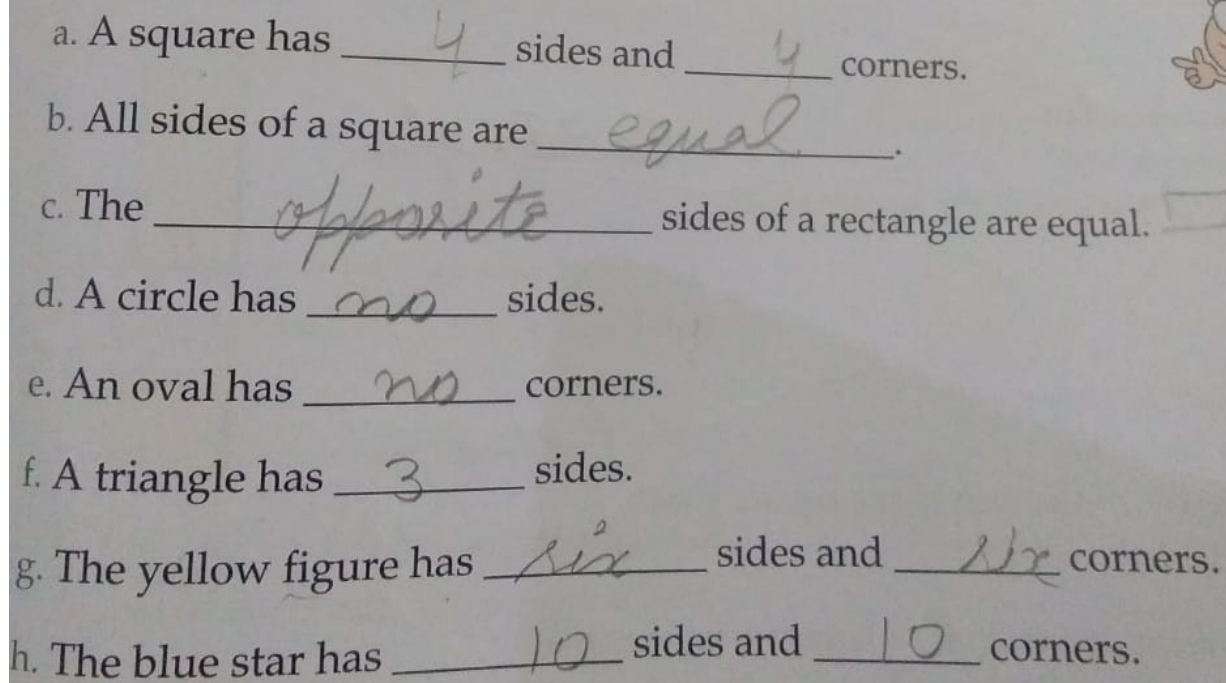 a. A square has 4 sides and 4 corners.
b. All sides of a square are equal.
c. The opposite sides of a rectangle are equal.
d. A circle has no sides.
e. An oval has no corners.
f. A triangle has 3 sides.
g. The yellow figure has six sides and six corners.
h. The blue star has 10 sides and 10 corners.